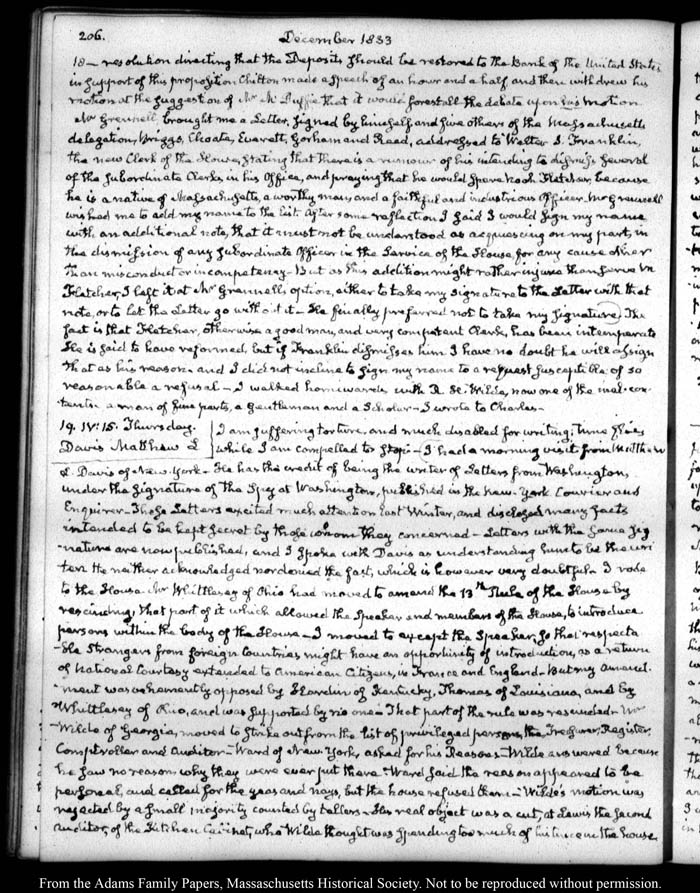 206.
December 1833
18 — resolution directing that the Deposits should be restored to the Bank of the United States
in support of this proposition Chilton made a speech of an hour and a half and then withdrew his
motion at the suggestion of Mr McDuffie that it would forestall the debate upon his motion
Mr Grennell brought me a Letter, signed by himself and five others of the Massachusetts
delegation, Briggs, Choate, Everett, Gorham and Reed, addressed to Walter S. Franklin,
the new Clerk of the House, stating that there is a rumour of his intending to dismiss several
of the subordinate Clerks, in his Office, and praying that he would spare Noah Fletcher, because
he is a native of Massachusetts, a worthy man, and a faithful and industrious Officer. Mr Grennell
wished me to add my name to the list. After some reflection I said I would sign my name
with an additional note, that it must not be understood as acquiescing on my part, in
the dismission of any subordinate Officer in the Service of the House, for any cause other
than misconduct or incompetency — But as this addition might rather injure than serve Mr
Fletcher, I left it at Mr Grennell's option, either to take my signature to the Letter with that
note, or to let the Letter go without it — He finally preferred not to take my signature. The
fact is that Fletcher, otherwise a good man, and very competent Clerk, has been intemperate
He is said to have reformed, but if Franklin dismisses him I have no doubt he will assign
that as his reason — and I did not incline to sign my name to a request susceptible of so
reasonable a refusal — I walked homewards with R. H. Wilde, now one of the mal-con-
tents. a man of fine parts, a Gentleman and a Scholar — I wrote to Charles —
19. IV:15. Thursday. I am suffering torture, and much disabled for writing; time flies
Davis Matthew L while I am compelled to stop — I had a morning visit from Matthew
L. Davis of New-York — He has the credit of being the writer of Letters from Washington,
under the signature of the Spy at Washington, published in the New-York Courier and
Enquirer — Those Letters excited much attention last Winter, and disclosed many facts
intended to be kept secret by those whom they concerned — Letters with the same sig-
nature are now published, and I spoke with Davis as understanding him to be the wri-
ter. He neither acknowledged nor denied the fact, which is however very doubtful — I rode
to the House. Mr Whittlesey of Ohio had moved to amend the 13th Rule of the House by
rescinding, that part of it which allowed the Speaker and members of the House, to introduce
persons within the body of the House — I moved to except the Speaker, so that respecta-
ble Strangers from foreign Countries might have an opportunity of introduction, as a return
of National Courtesy extended to American Citizens, in France and England — But my amend-
ment was vehemently opposed by Hardin of Kentucky, Thomas of Louisiana, and by
Whittlesey of Ohio, and was supported by no one — That part of the rule was rescinded — Mr
Wilde of Georgia, moved to strike out from the list of privileged persons, the Treasurer, Register,
Comptroller and Auditor — Ward of New York, asked for his Reasons — Wilde answered because
he saw no reason why they were ever put there — Ward said the reason appeared to be
personal, and called for the yeas and nays, but the house refused them — Wilde's motion was
rejected by a small majority counted by tellers — His real object was a cut, at Lewis the second
auditor, of the Kitchen Cabinet, who Wilde thought was spending too much of his time in the house
From the Adams Family Papers, Massachusetts Historical Society. Not to be reproduced without permission.